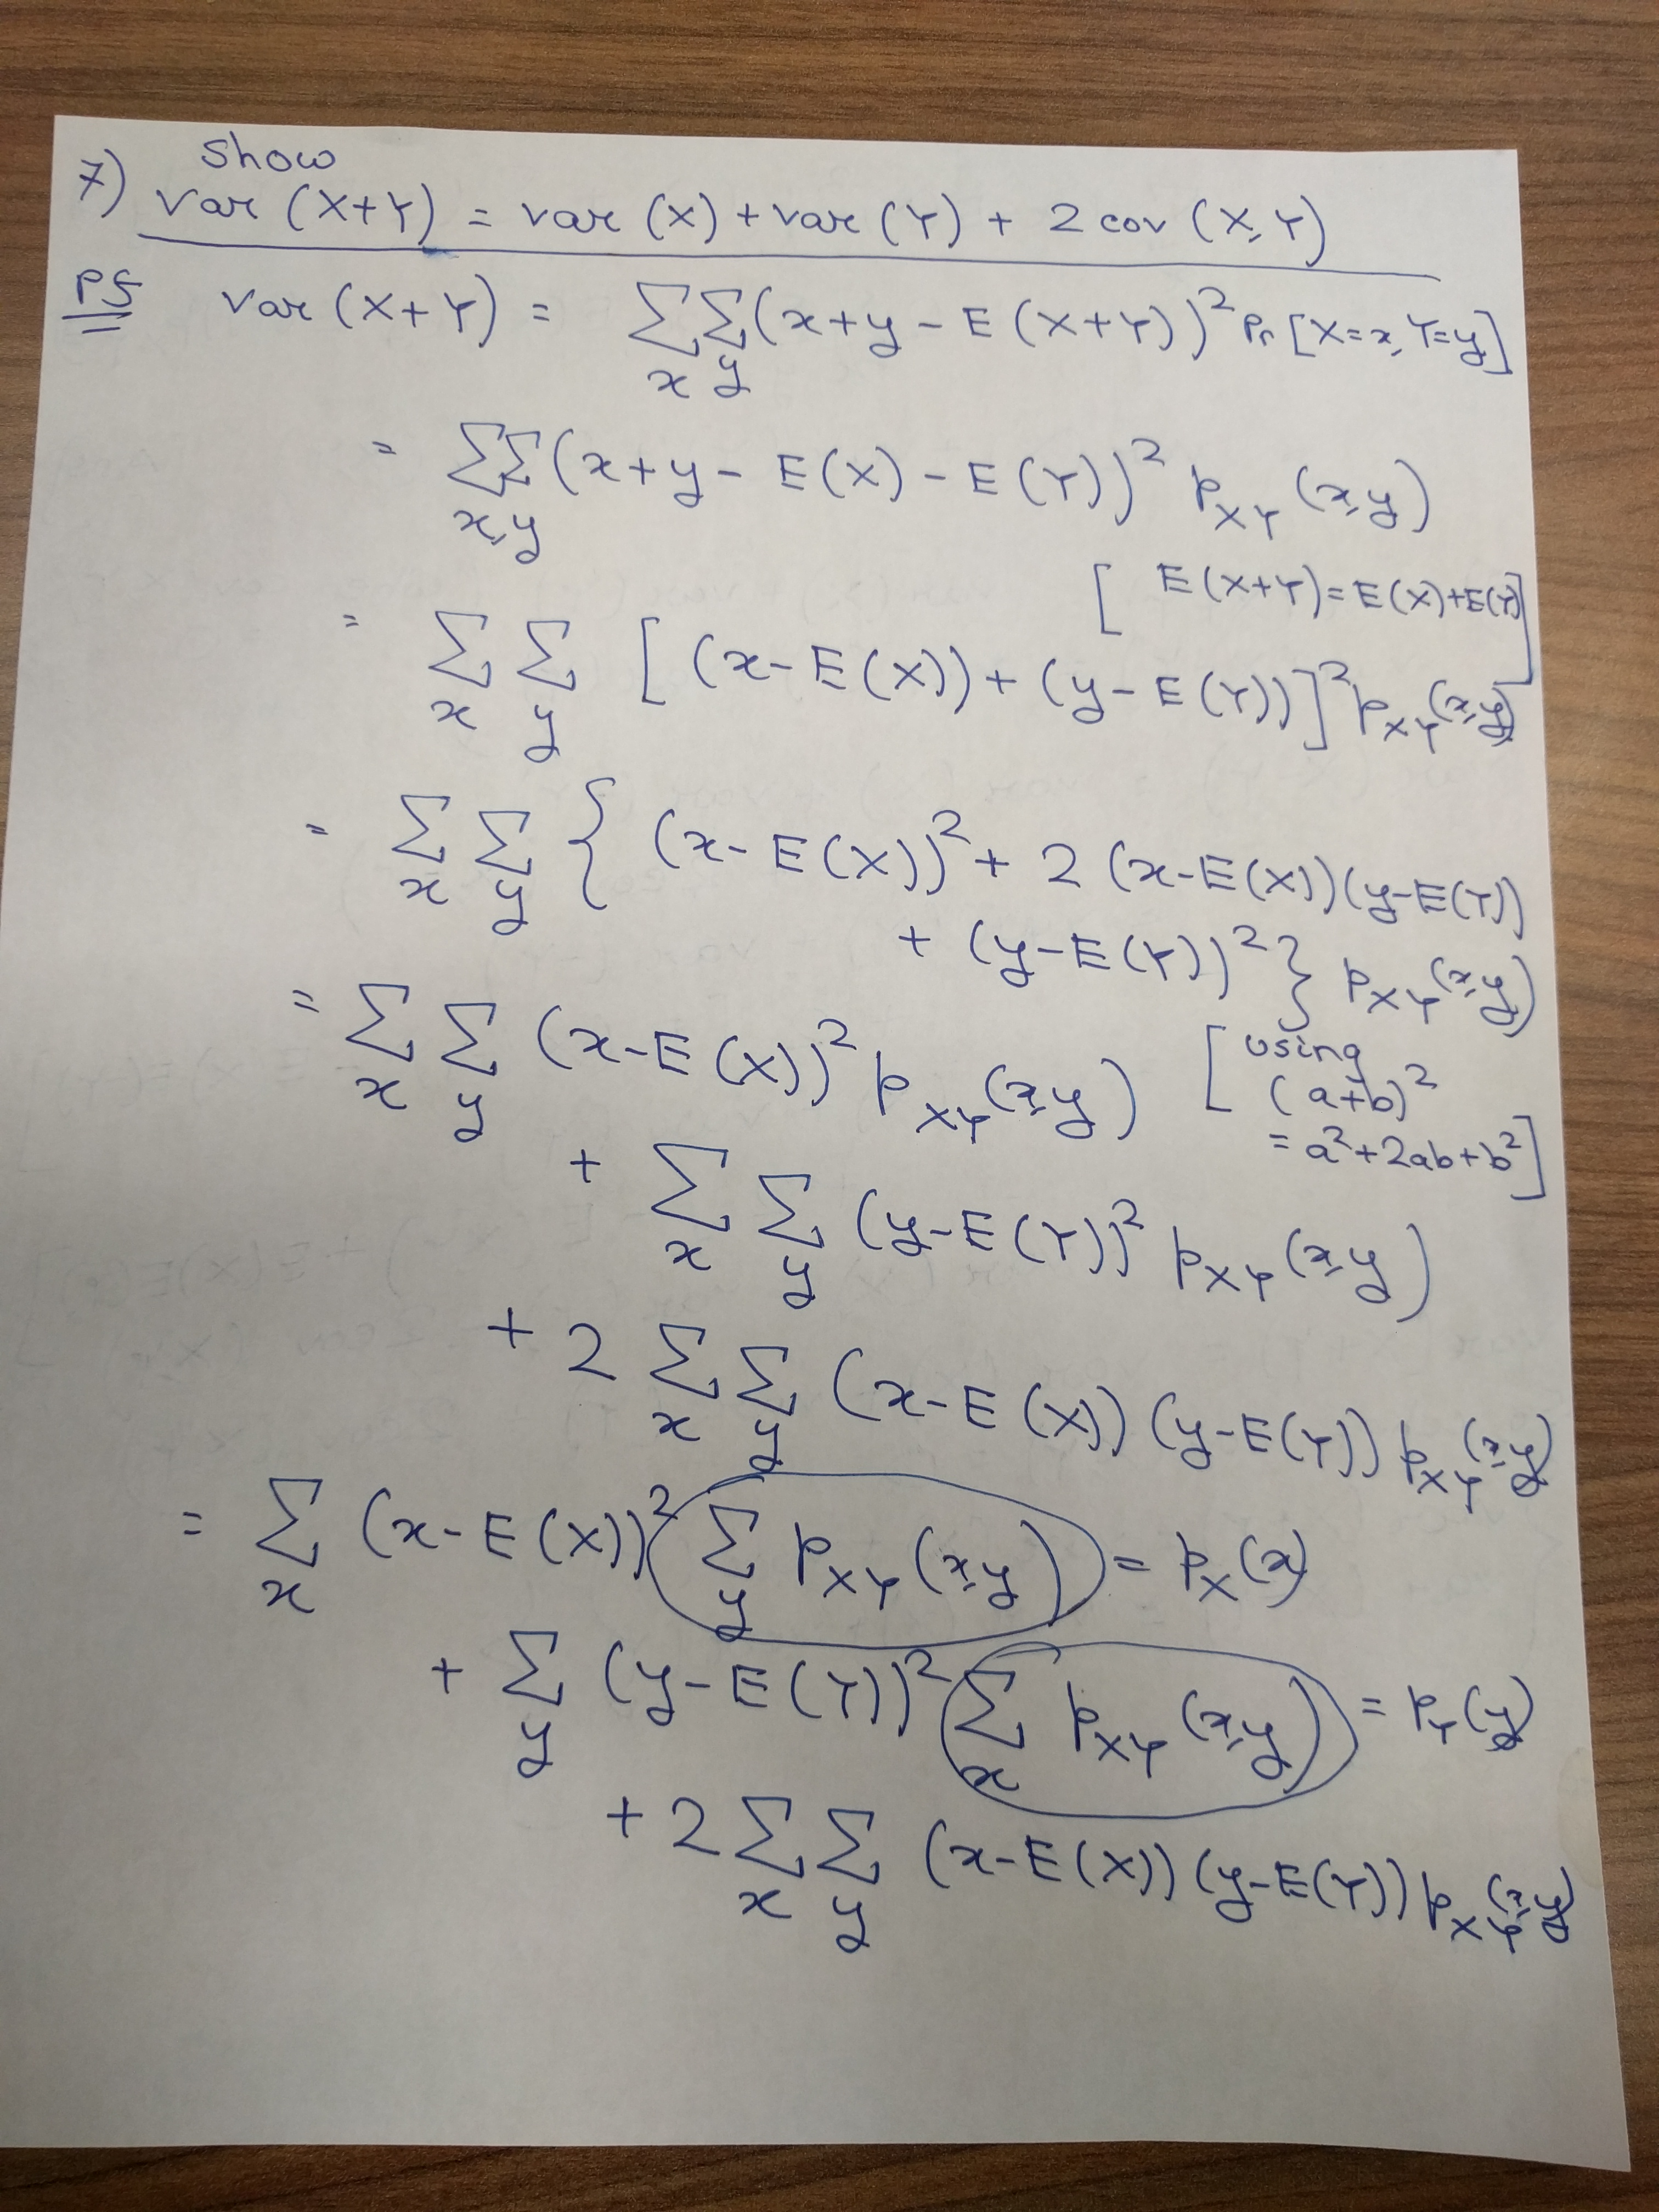 7) Show
var (X+Y) = var (X) + var (Y) + 2 cov (X,Y)
Pf var (X+Y) = ∑_x ∑_y (x+y - E(X+Y))² Pr [X=x, Y=y]
= ∑∑_{x,y} (x+y - E(X) - E(Y))² p_{XY} (x,y)
[E(X+Y) = E(X)+E(Y)]
= ∑_x ∑_y [(x-E(X)) + (y-E(Y))]² p_{XY} (x,y)
= ∑_x ∑_y { (x-E(X))² + 2 (x-E(X))(y-E(Y))
+ (y-E(Y))² } p_{XY} (x,y)
= ∑_x ∑_y (x-E(X))² p_{XY} (x,y) [using
(a+b)²
= a²+2ab+b²]
+ ∑_x ∑_y (y-E(Y))² p_{XY} (x,y)
+ 2 ∑_x ∑_y (x-E(X)) (y-E(Y)) p_{XY} (x,y)
= ∑_x (x-E(X))² ∑_y p_{XY} (x,y) = p_X (x)
+ ∑_y (y-E(Y))² ∑_x p_{XY} (x,y) = p_Y (y)
+ 2 ∑_x ∑_y (x-E(X)) (y-E(Y)) p_{XY} (x,y)